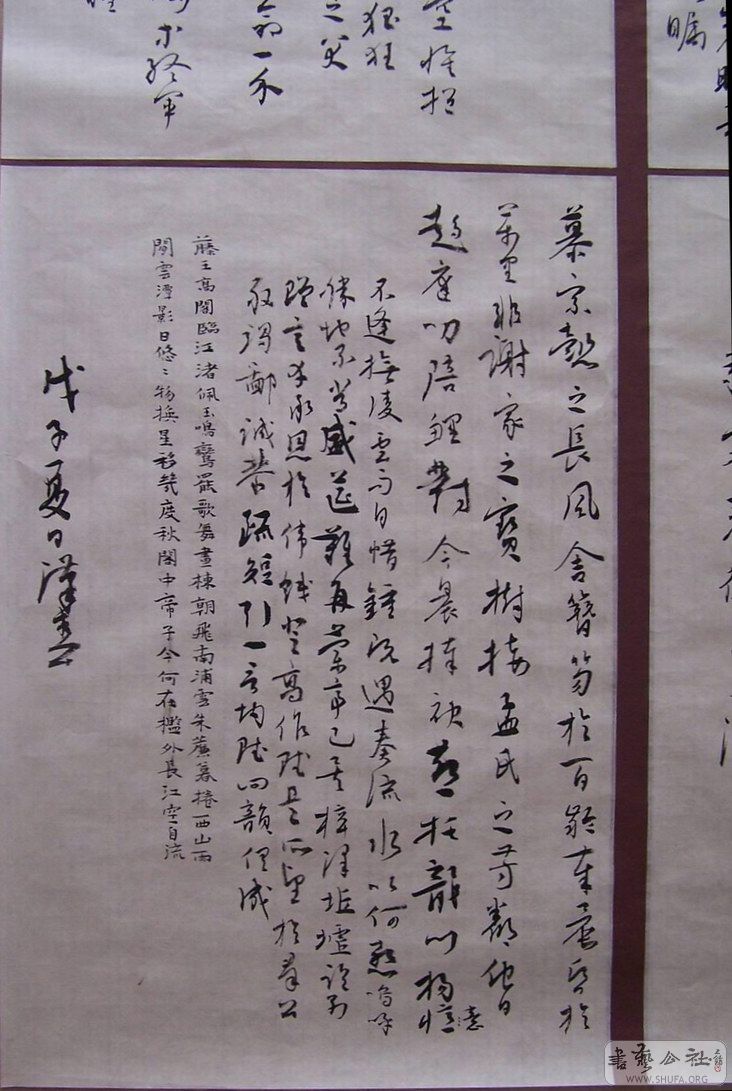 矚
空懷報
猖狂
之哭
命一介
終軍
慕宗慤之長風舍簪笏於百齡奉晨昏於
萬里非謝家之寶樹接孟氏之芳鄰他日
趨庭叨陪鯉對今晨捧袂喜托龍門楊意
不逢撫凌雲而自惜鍾既遇奏流水以何慙嗚呼
勝地不常盛筵難再蘭亭已矣梓澤坵墟臨別
贈言幸承恩於偉餞登高作賦是所望於群公
敢竭鄙誠恭疏短引一言均賦四韻俱成
藤王高閣臨江渚佩玉鳴鸞罷歌舞畫棟朝飛南浦雲朱簾暮捲西山雨
閒雲潭影日悠〻物換星移幾度秋閣中帝子今何在檻外長江空自流
戊子夏日漢
書藝公社
WWW.SHUFA.ORG